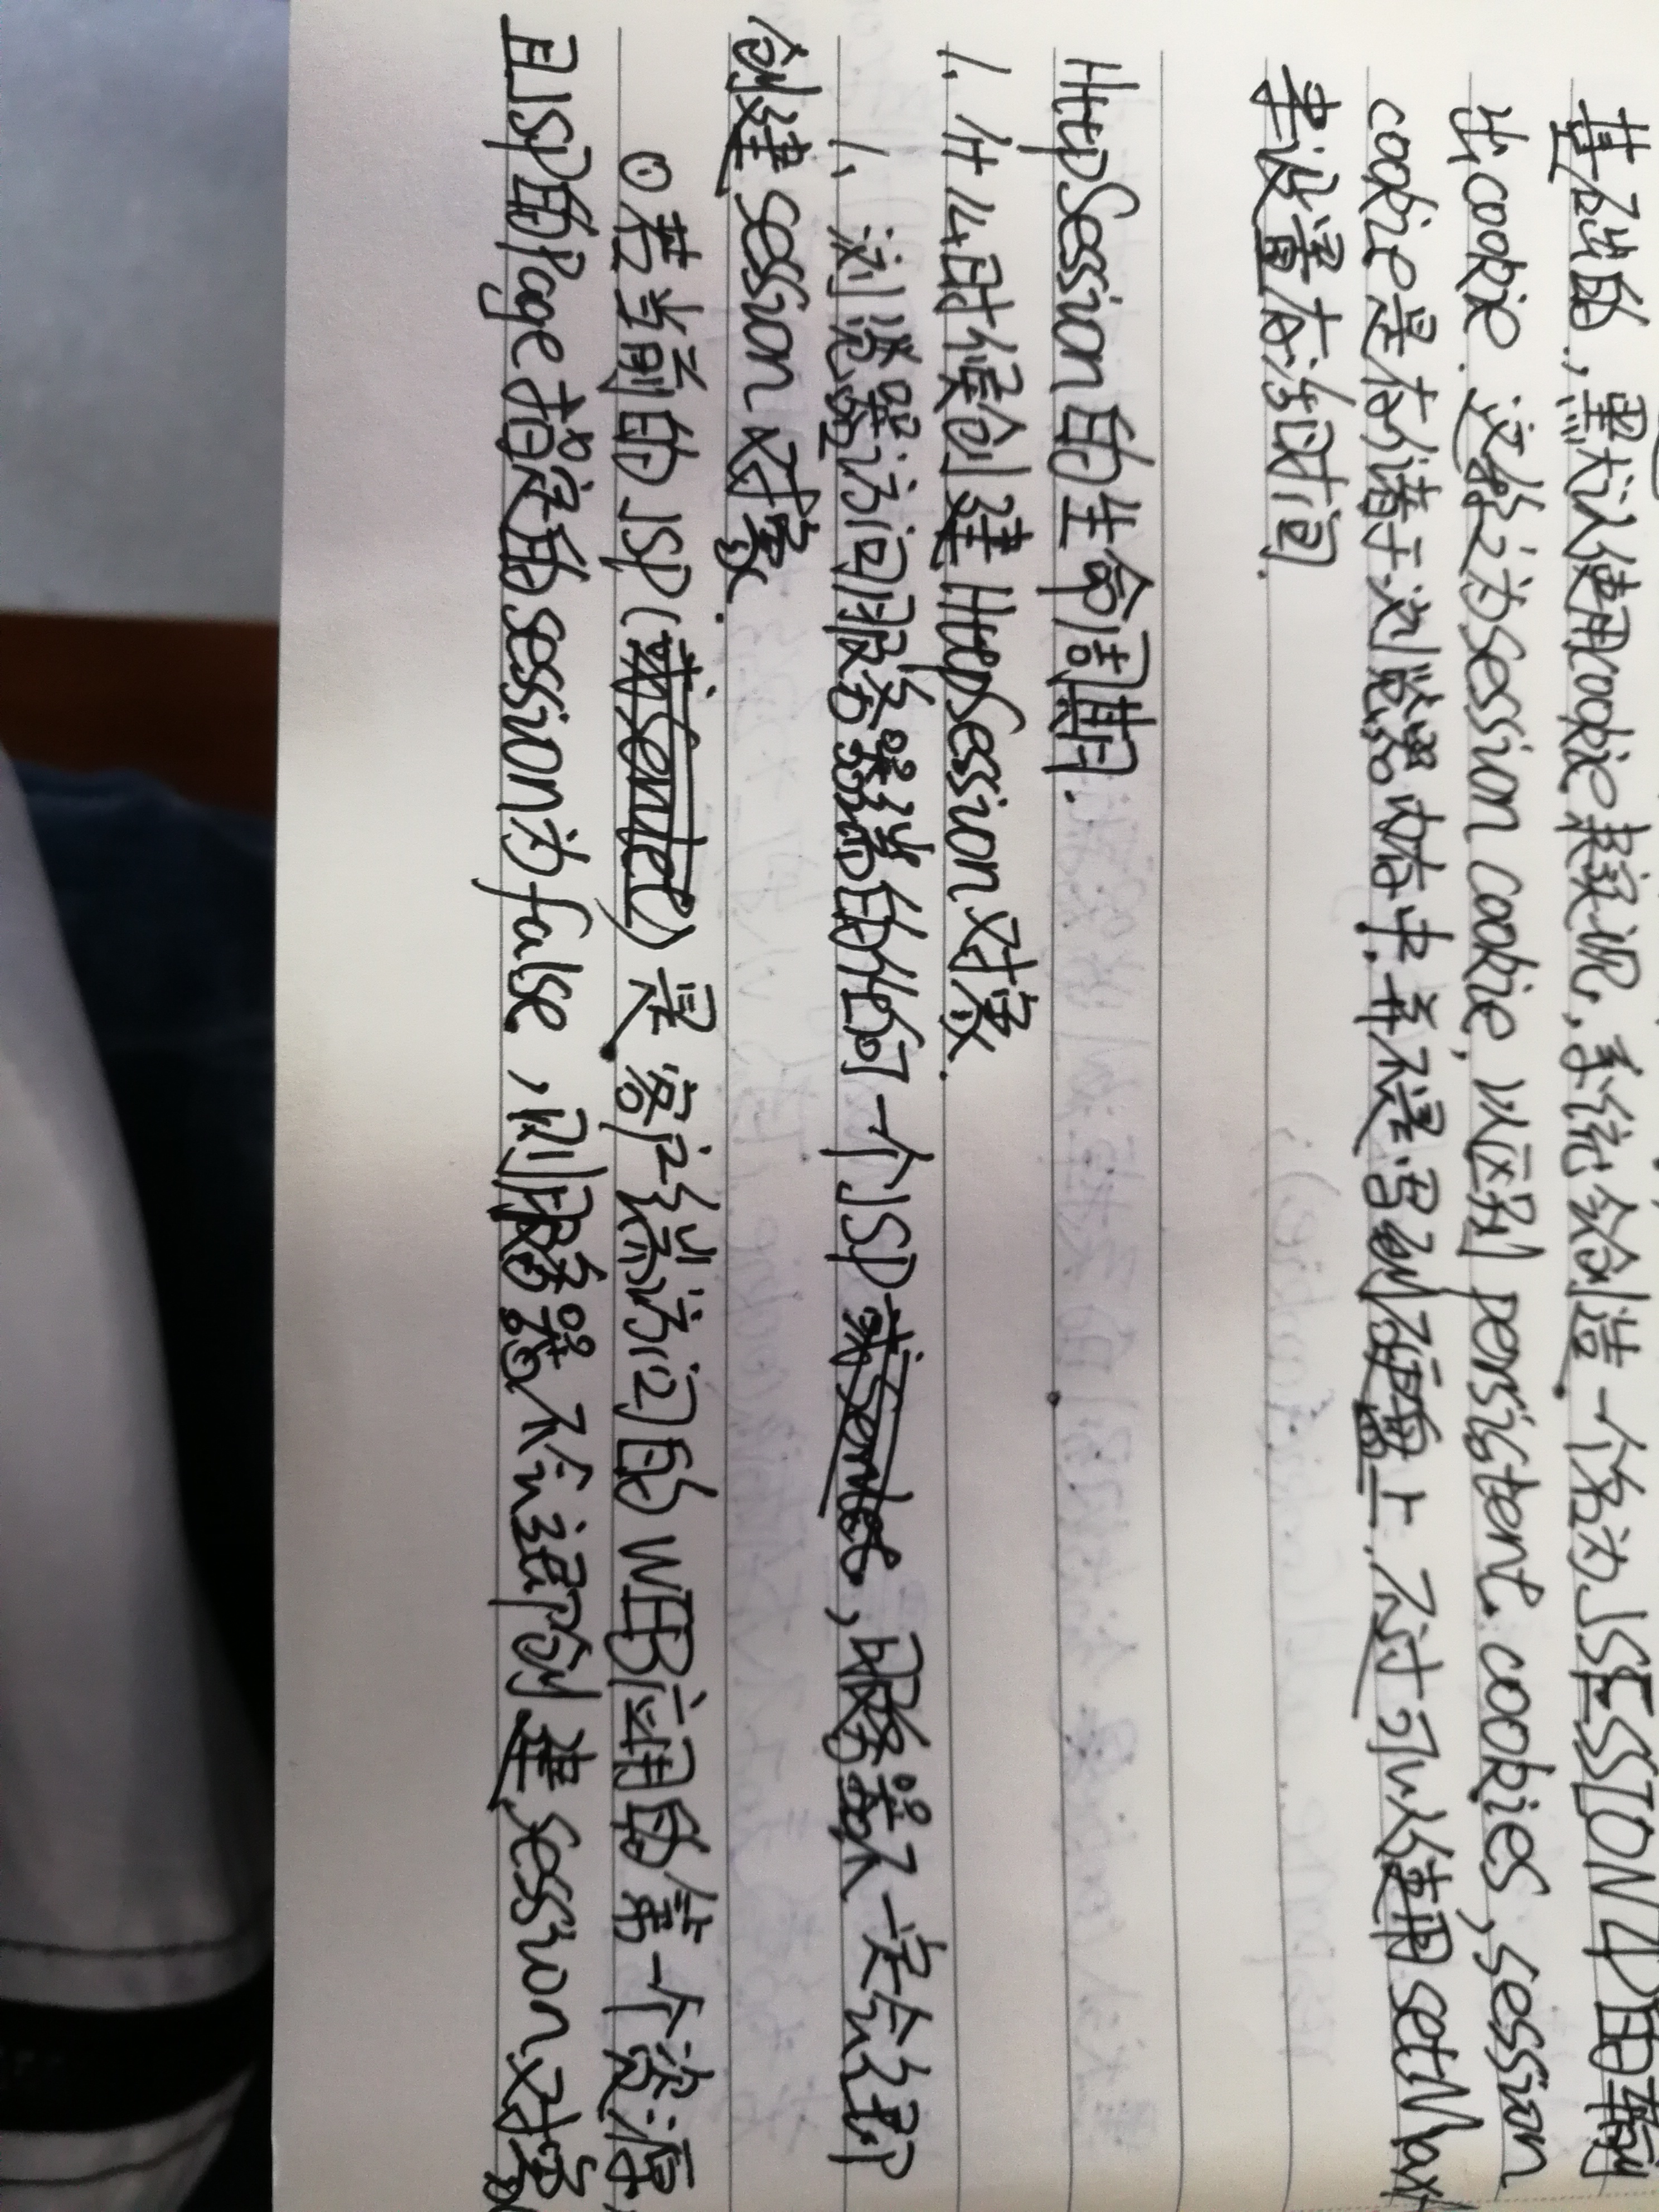 基础的,黑犬认使用cookie来实现,系统会创造一个名为JSESSION的输
出cookie.这称之为session cookie,以区别persistent cookies,session
cookie是存储于浏览器内存中.并不是写到硬盘上.不过可以使用setMax
来设置存活时间.
HttpSession的生命周期.
1、什么时候创建HttpSession对象.
1、浏览器访问服务器端的任何一个JSP或Servlet,服务器不一定会立即
创建session对象.
⊙若当前的JSP(或Servlet)是客户端访问的WEB应用的第一个资源,
且JSP的Page指定的session为false,则服务器不会适时创建session对象